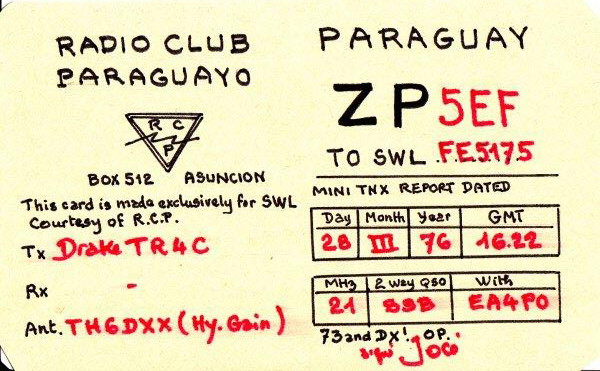 RADIO CLUB
PARAGUAYO
R C
P
BOX 512 ASUNCION
This card is made exclusively for SWL
Courtesy of R.C.P.
Tx Drake TR4C
Rx -
Ant. TH6DXX (Hy. Gain)
PARAGUAY
ZP5EF
TO SWL .F.E.5175
MINI TNX REPORT DATED
Day Month Year GMT
28 III 76 16.22
MHz 2 way QSO With
21 SSB EA4PO
73 and DX! OP.